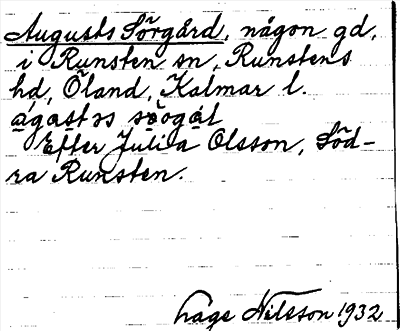 Augusts Sörgård, någon gd,
i Runsten sn, Runstens
hd, Öland, Kalmar l.
Efter Julia Olsson, Söd-
ra Runsten.
Åage Nilsson 1932